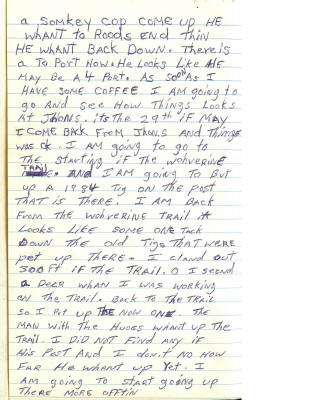 a somkey cop come up He
whant to Roods end thin
He whant Back Down. Thereis
a To Port Now. He Looks Like He
May Be a 4 Port. As soon As I
Have some coffee I am going to
go and see How Things Looks
At Jhons. its the 29th if May
I come Back from Jhons and Things
was ok. I am going to go to
The starting if the wolverine
Trail. And I am going to But
up a 1984 Tig on the post
That is There. I am Back
From the wolverine Trail it
Looks Like some one Tack
Down the old Tigs That were
pet up There. I cland out
300 ft if the Trail. O I seend
a Deer whan I was working
on the Trail. Back to the Trail
so I Put up The now one. The
man with the Huogs whant up the
Trail. I Did not Find any if
His Post And I don.t no How
Far He whant up Yet. I
am going to start going up
There more offtin